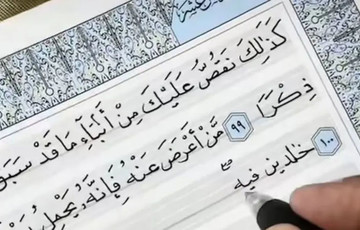 كَذَٰلِكَ نَقُصُّ عَلَيْكَ مِنْ أَنۢبَآءِ مَا قَدْ سَبَقَ
ذِكْرًا ٩٩ مَّنْ أَعْرَضَ عَنْهُ فَإِنَّهُۥ يَحْمِلُ
١٠٠ خَٰلِدِينَ فِيهِ